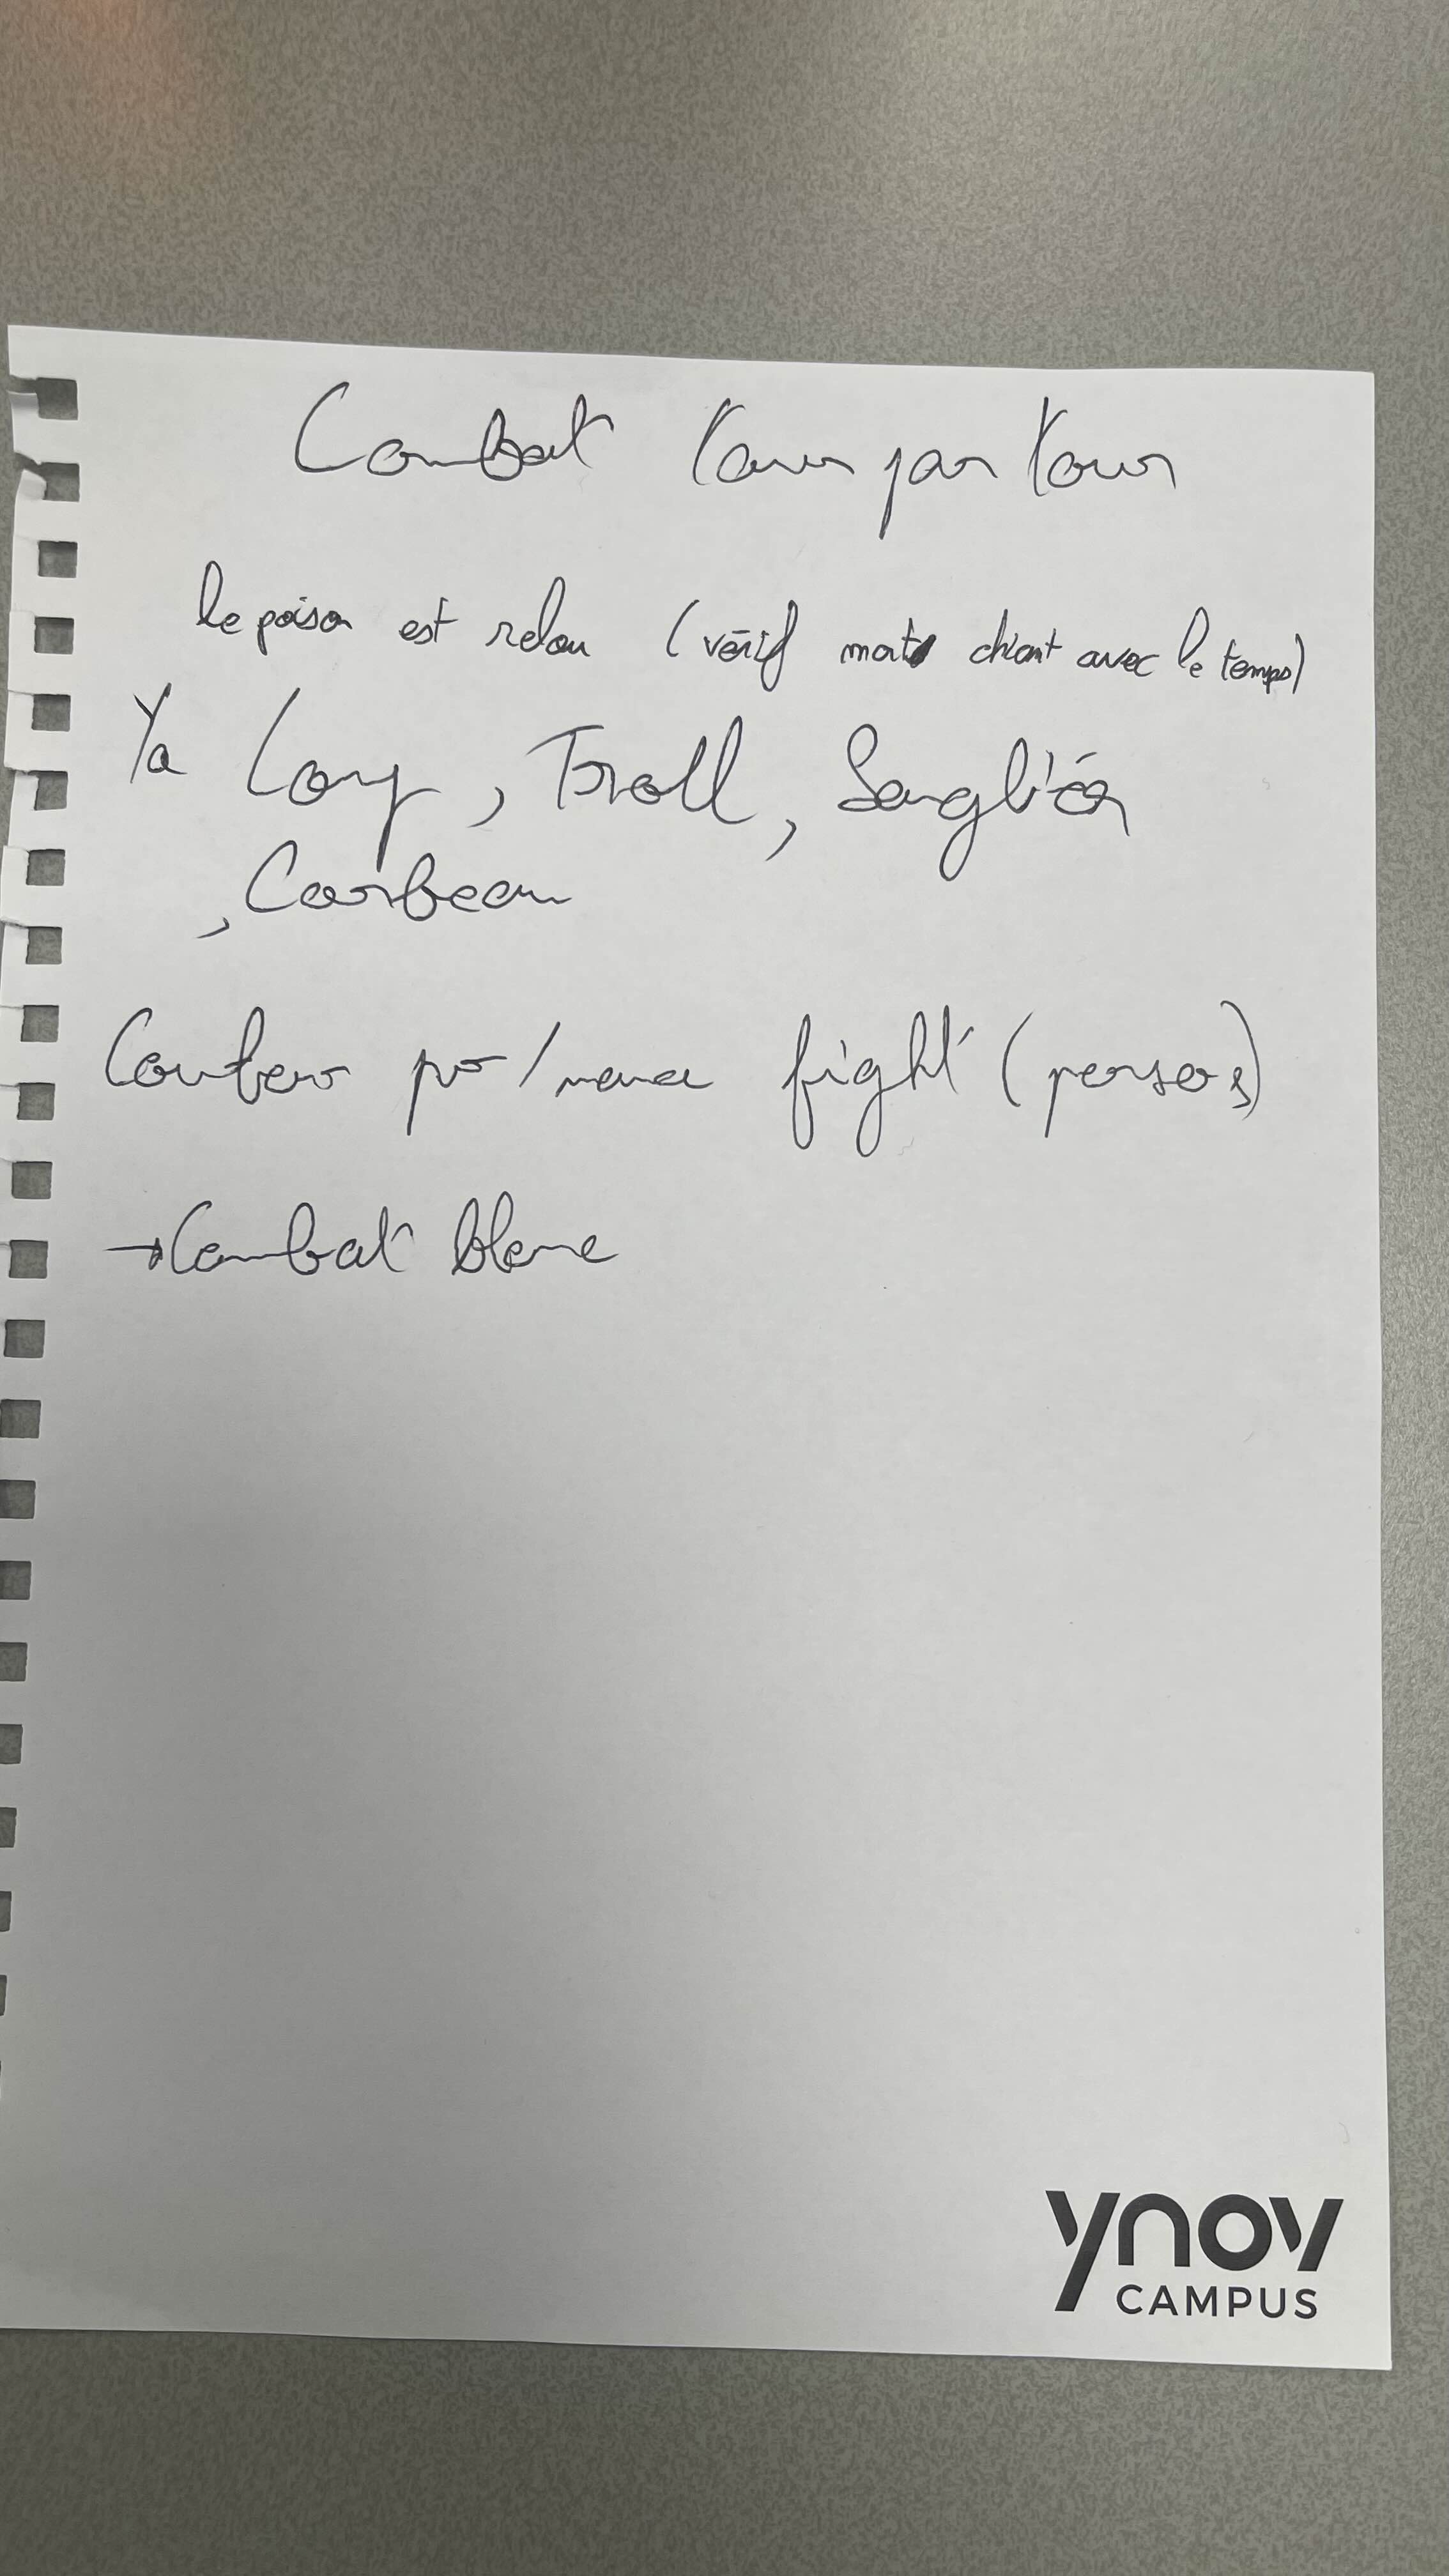 Combat tour par tour
le poison est relou (vérif mort chiant avec le temps)
Ya Loup, Troll, Sanglier
, Corbeau
Couleur pr/ fight (persos)
→ Combat blanc
ynov
CAMPUS